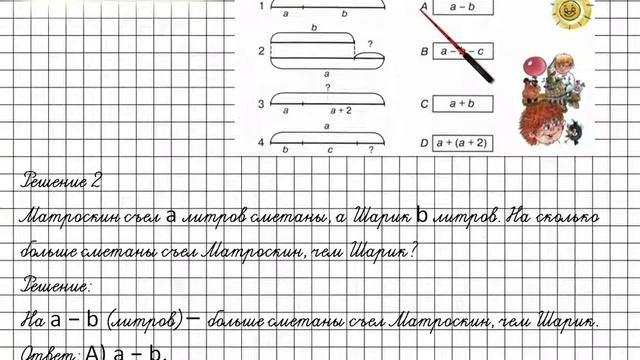 1 a b A a – b
2 b ? a B a – b – c
3 ? a a + 2 C a + b
4 a b c ? D a + (a + 2)
Решение 2
Матроскин съел a литров сметаны, а Шарик b литров. На сколько
больше сметаны съел Матроскин, чем Шарик?
Решение:
На a – b (литров) – больше сметаны съел Матроскин, чем Шарик.
Ответ: А) a – b.